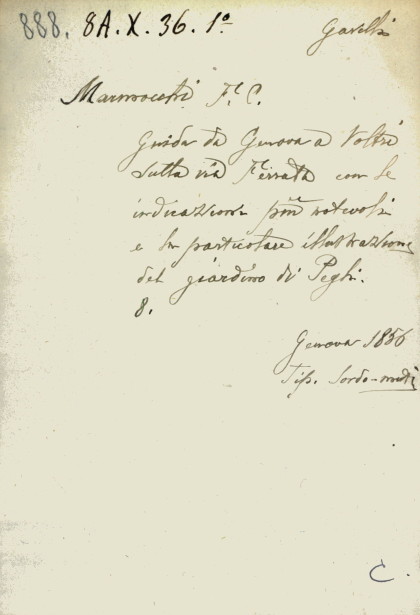 888. 8A. X. 36. 1º
Gavelli
Marmocchi F. C.
Guida da Genova a Voltri
sulla via Ferrata con le
indicazioni più notevoli
e la particolare illustrazione
del giardino di Pegli.
8.
Genova 1856
Tip. Sordo-muti
C.